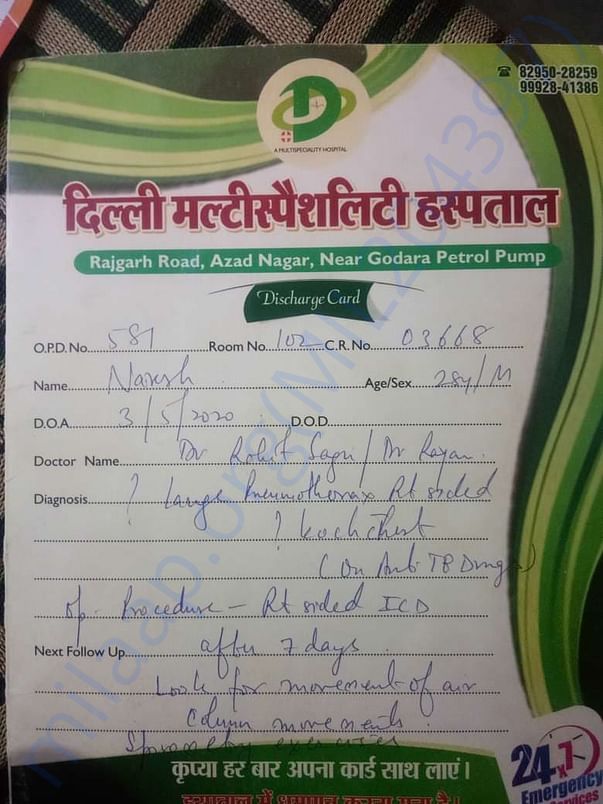 82950-28259
99928-41386
A MULTISPECIALITY HOSPITAL
दिल्ली मल्टीस्पैशलिटी हस्पताल
Rajgarh Road, Azad Nagar, Near Godara Petrol Pump
Discharge Card
O.P.D. No. 581 Room No. 102 C.R. No. 03668
Name Naresh Age/Sex 28y/M
D.O.A. 3/5/2020 D.O.D.
Doctor Name Dr Rohit / Dr
Diagnosis ? Large Pneumothorax Rt sided
? Koch chest
(On Anti TB Drugs)
Op. Procedure - Rt sided ICD
Next Follow Up after 7 days
Look for movement of air
column movements
Spirometry exercises
कृप्या हर बार अपना कार्ड साथ लाएं।
24x7
Emergency
milaap.org